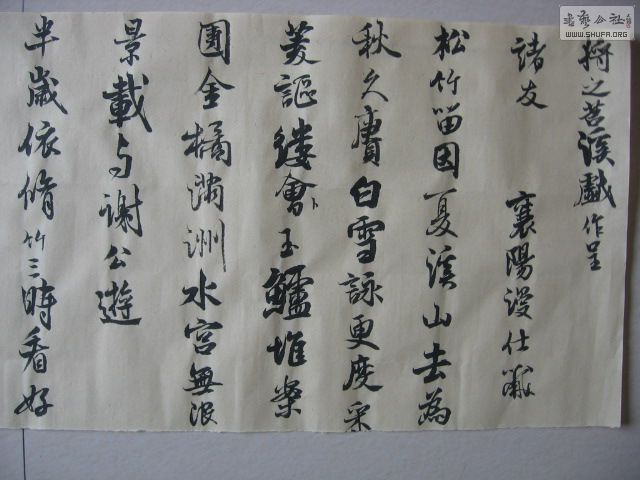 書藝公社
WWW.SHUFA.ORG
將之苕溪戲作呈
諸友 襄陽漫仕黻
松竹留因夏溪山去為
秋久賡白雪詠更度采
菱謳縷會卜玉鱸堆案
團金橘滿洲水宮無限
景載与謝公遊
半歲依脩竹三時看好